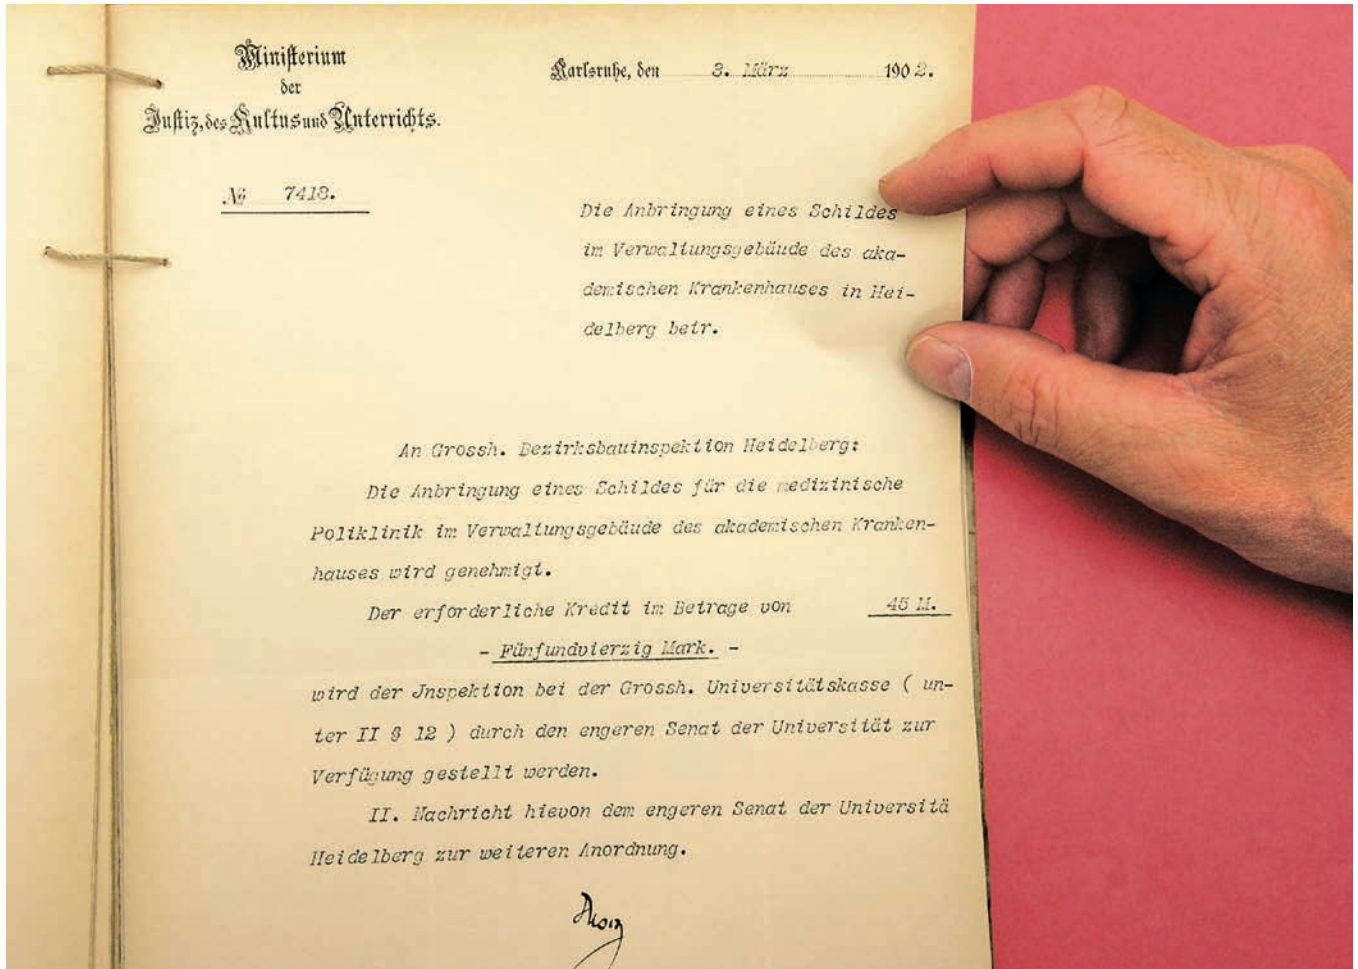 Ministerium
der
Justiz, des Kultus und Unterrichts.
Karlsruhe, den 3. März 1902.
No 7418.
Die Anbringung eines Schildes
im Verwaltungsgebäude des aka-
demischen Krankenhauses in Hei-
delberg betr.
An Grossh. Bezirksbauinspektion Heidelberg:
Die Anbringung eines Schildes für die medizinische
Poliklinik im Verwaltungsgebäude des akademischen Kranken-
hauses wird genehmigt.
Der erforderliche Kredit im Betrage von 45 M.
- Fünfundvierzig Mark. -
wird der Jnspektion bei der Grossh. Universitätskasse ( un-
ter II § 12 ) durch den engeren Senat der Universität zur
Verfügung gestellt werden.
II. Nachricht hievon dem engeren Senat der Universitä
Heidelberg zur weiteren Anordnung.